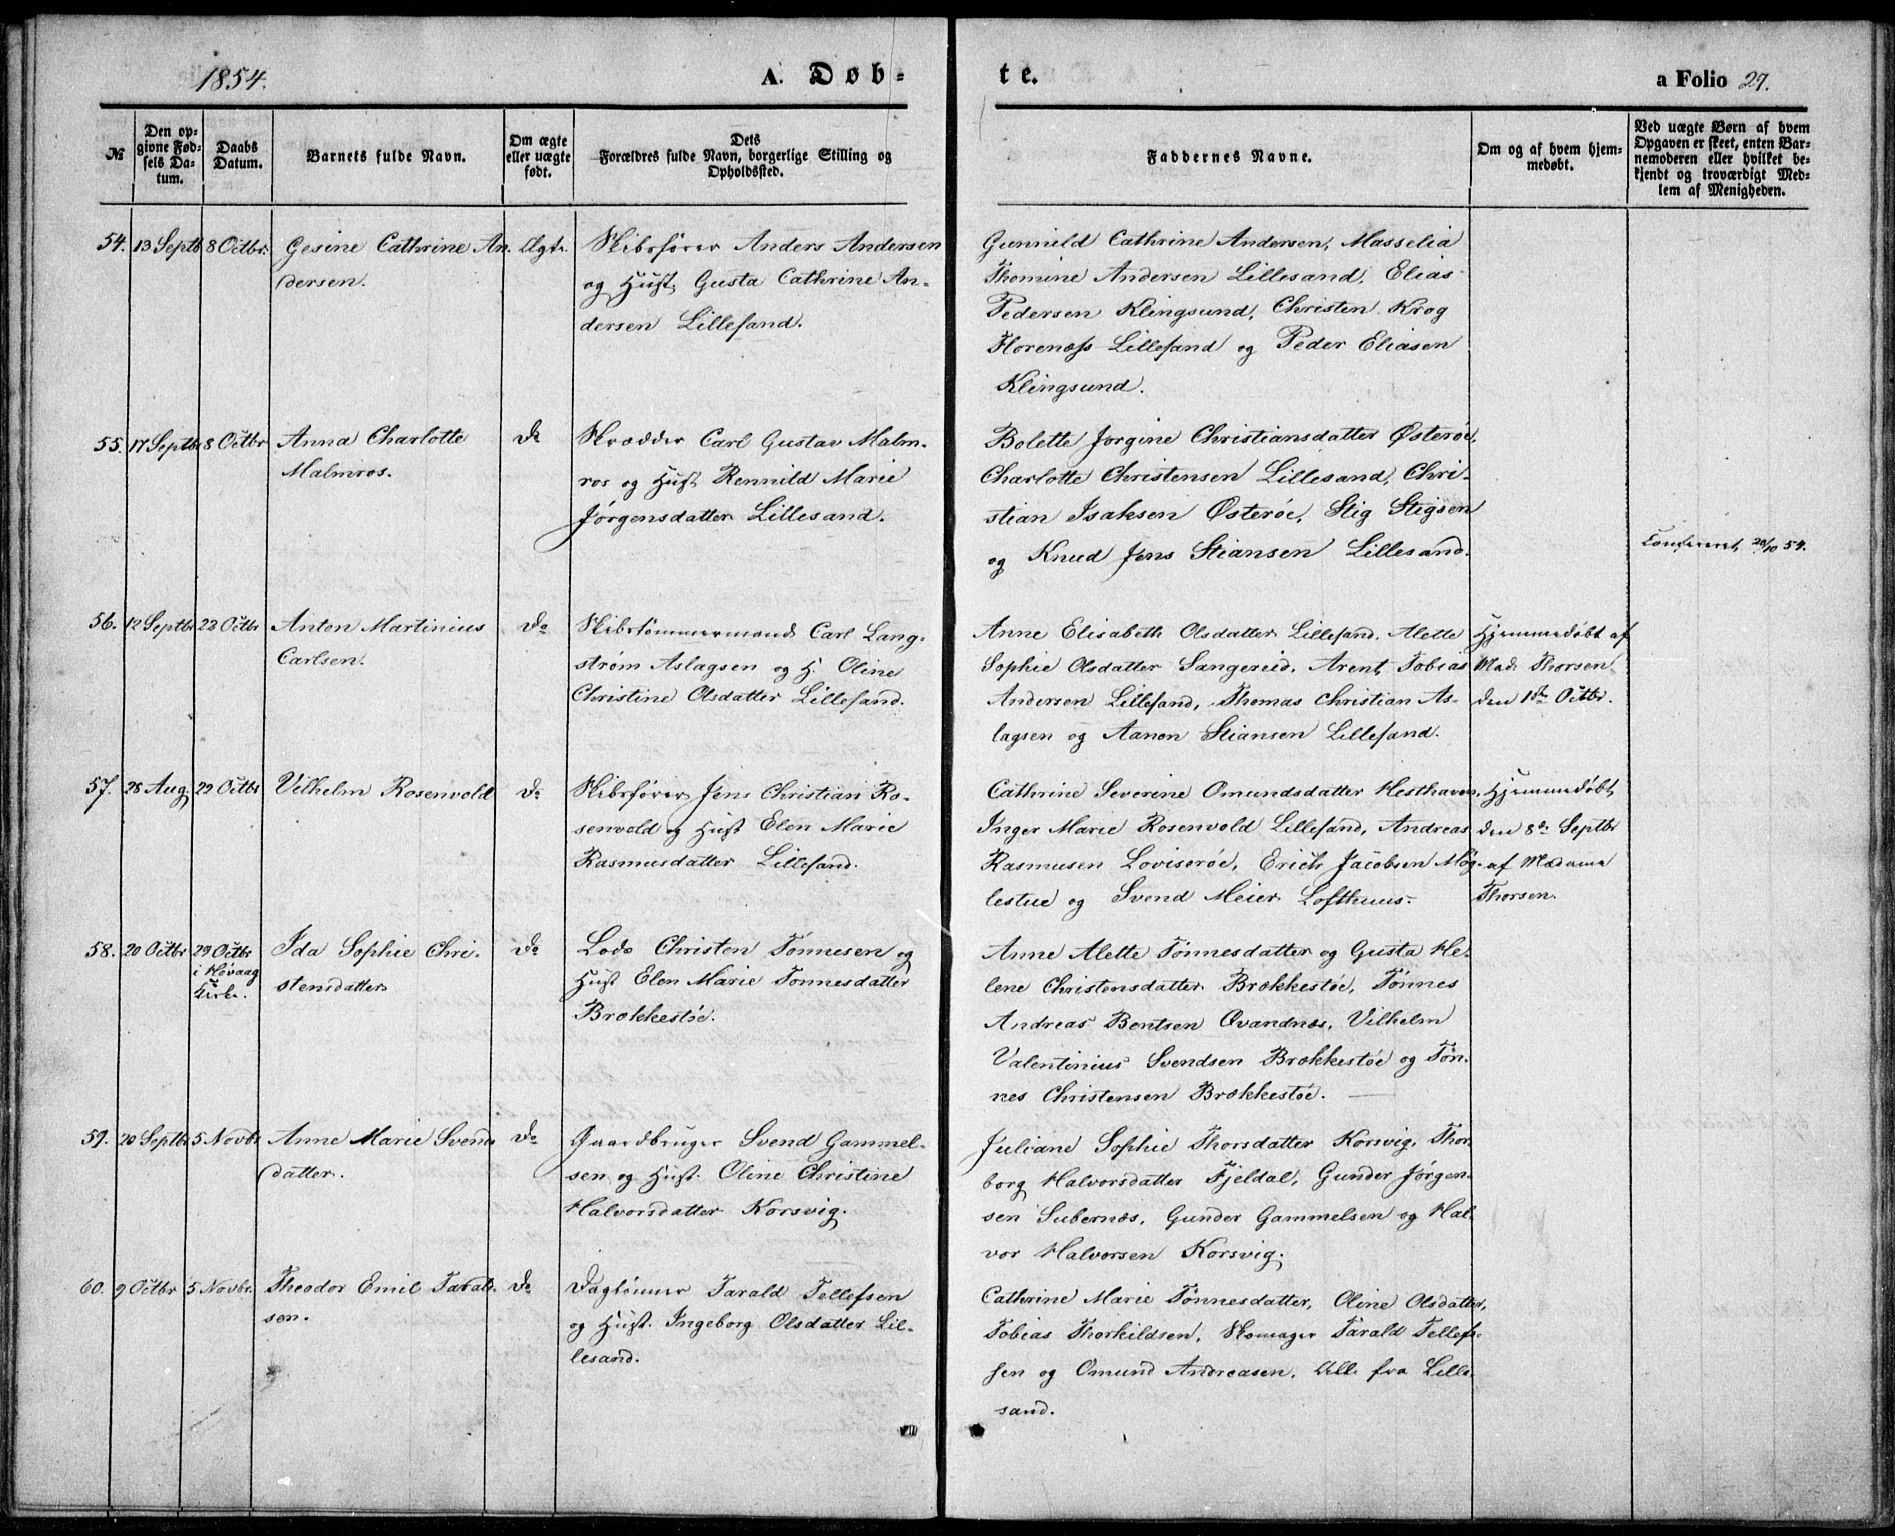 1854.
A. Døb-
te.
a Folio 29.
№
Den op-
givne Fød-
sels Da-
tum.
Daabs
Datum.
Barnets fulde Navn.
Om ægte
eller uægte
født.
Dets
Forældres fulde Navn, borgerlige Stilling og
Opholdssted.
Faddernes Navne.
Om og af hvem hjem-
medøbt.
Ved uægte Børn af hvem
Opgaven er skeet, enten Bar-
nemoderen eller hvilket be-
kjendt og troværdigt Med-
lem af Menigheden.
54. 13 Septb 8 Octbr.
Gesine Cathrine An-
dersen.
Ægte
Skibsfører Anders Andersen
og Hust. Gusta Cathrine An-
dersen Lillesand.
Gunnild Cathrine Andersen, Masselia
Thomine Andersen Lillesand, Elias
Pedersen Klingsund, Christen Krog
Florenæss Lillesand og Peder Eliasen
Klingsund.
55. 17 Septbr 8 Octbr
Anna Charlotte
Malmros.
Do
Skrædder Carl Gustav Malm-
ros og Hust. Rennild Marie
Jørgensdatter Lillesand.
Bolette Jorgine Christiansdatter Østerøe,
Charlotte Christensen Lillesand, Chri-
stian Isaksen Østerøe, Stig Stigsen
og Knud Jens Stiansen Lillesand.
Confereret 20/10 54.
56. 12 Septbr 22 Octbr
Anton Martinius
Carlsen.
Do
Skibstømmermand Carl Lang-
strøm Aslagsen og H. Oline
Christine Olsdatter Lillesand.
Anne Elisabeth Olsdatter Lillesand, Alette
Sophie Olsdatter Sangereid, Arent Tobias
Andersen Lillesand, Thomas Christian As-
lagsen og Aanon Stiansen Lillesand.
Hjemmedøbt af
Mad. Thorsen
den 1ste Octbr.
57. 28 Aug 29 Octbr
Vilhelm Rosenvold
Do
Skibsfører Jens Christian Ro-
senvold og Hust Elen Marie
Rasmusdatter Lillesand.
Cathrine Severine Omundsdatter Hesthaven,
Inger Marie Rosenvold Lillesand, Andreas
Rasmusen Loviserøe, Erich Jacobsen Møg-
lestue og Svend Meier Lofthuus.
Hjemmedøbt
den 8de Septbr
af Madame
Thorsen.
58. 20 Octbr 29 Octbr
i Høvaag
Kirke.
Ida Sophie Chri-
stensdatter
Do
Lods Christen Tønnesen og
Hust Elen Marie Tønnesdatter
Brækkestøe.
Anne Alette Tønnesdatter og Gusta He-
lene Christensdatter Brækkestøe, Tønnes
Andreas Bentsen Qvandnæs, Vilhelm
Valentinius Svendsen Brækkestøe og Tøn-
nes Christensen Brækkestøe.
59. 20 Septbr 5 Novbr
Anne Marie Svends
datter.
Do
Gaardbruger Svend Gammel-
sen og Hust. Oline Christine
Halvorsdatter Korsvig.
Juliane Sophie Thorsdatter Korsvig, Thor
borg Halvorsdatter Fjeldal, Gunder Jørgen-
sen Subernæs, Gunder Gammelsen og Hal-
vor Halvorsen Korsvig.
60. 9 Octbr 5 Novbr.
Theodor Emil Tarald-
sen.
Do
Daglønner Tarald Tellefsen
og Hust. Ingeborg Olsdatter Lil-
lesand.
Cathrine Marie Tønnesdatter, Oline Olsdatter,
Tobias Thorkildsen, Skomager Tarald Tellef-
sen og Omund Andreasen, Alle fra Lille-
sand.